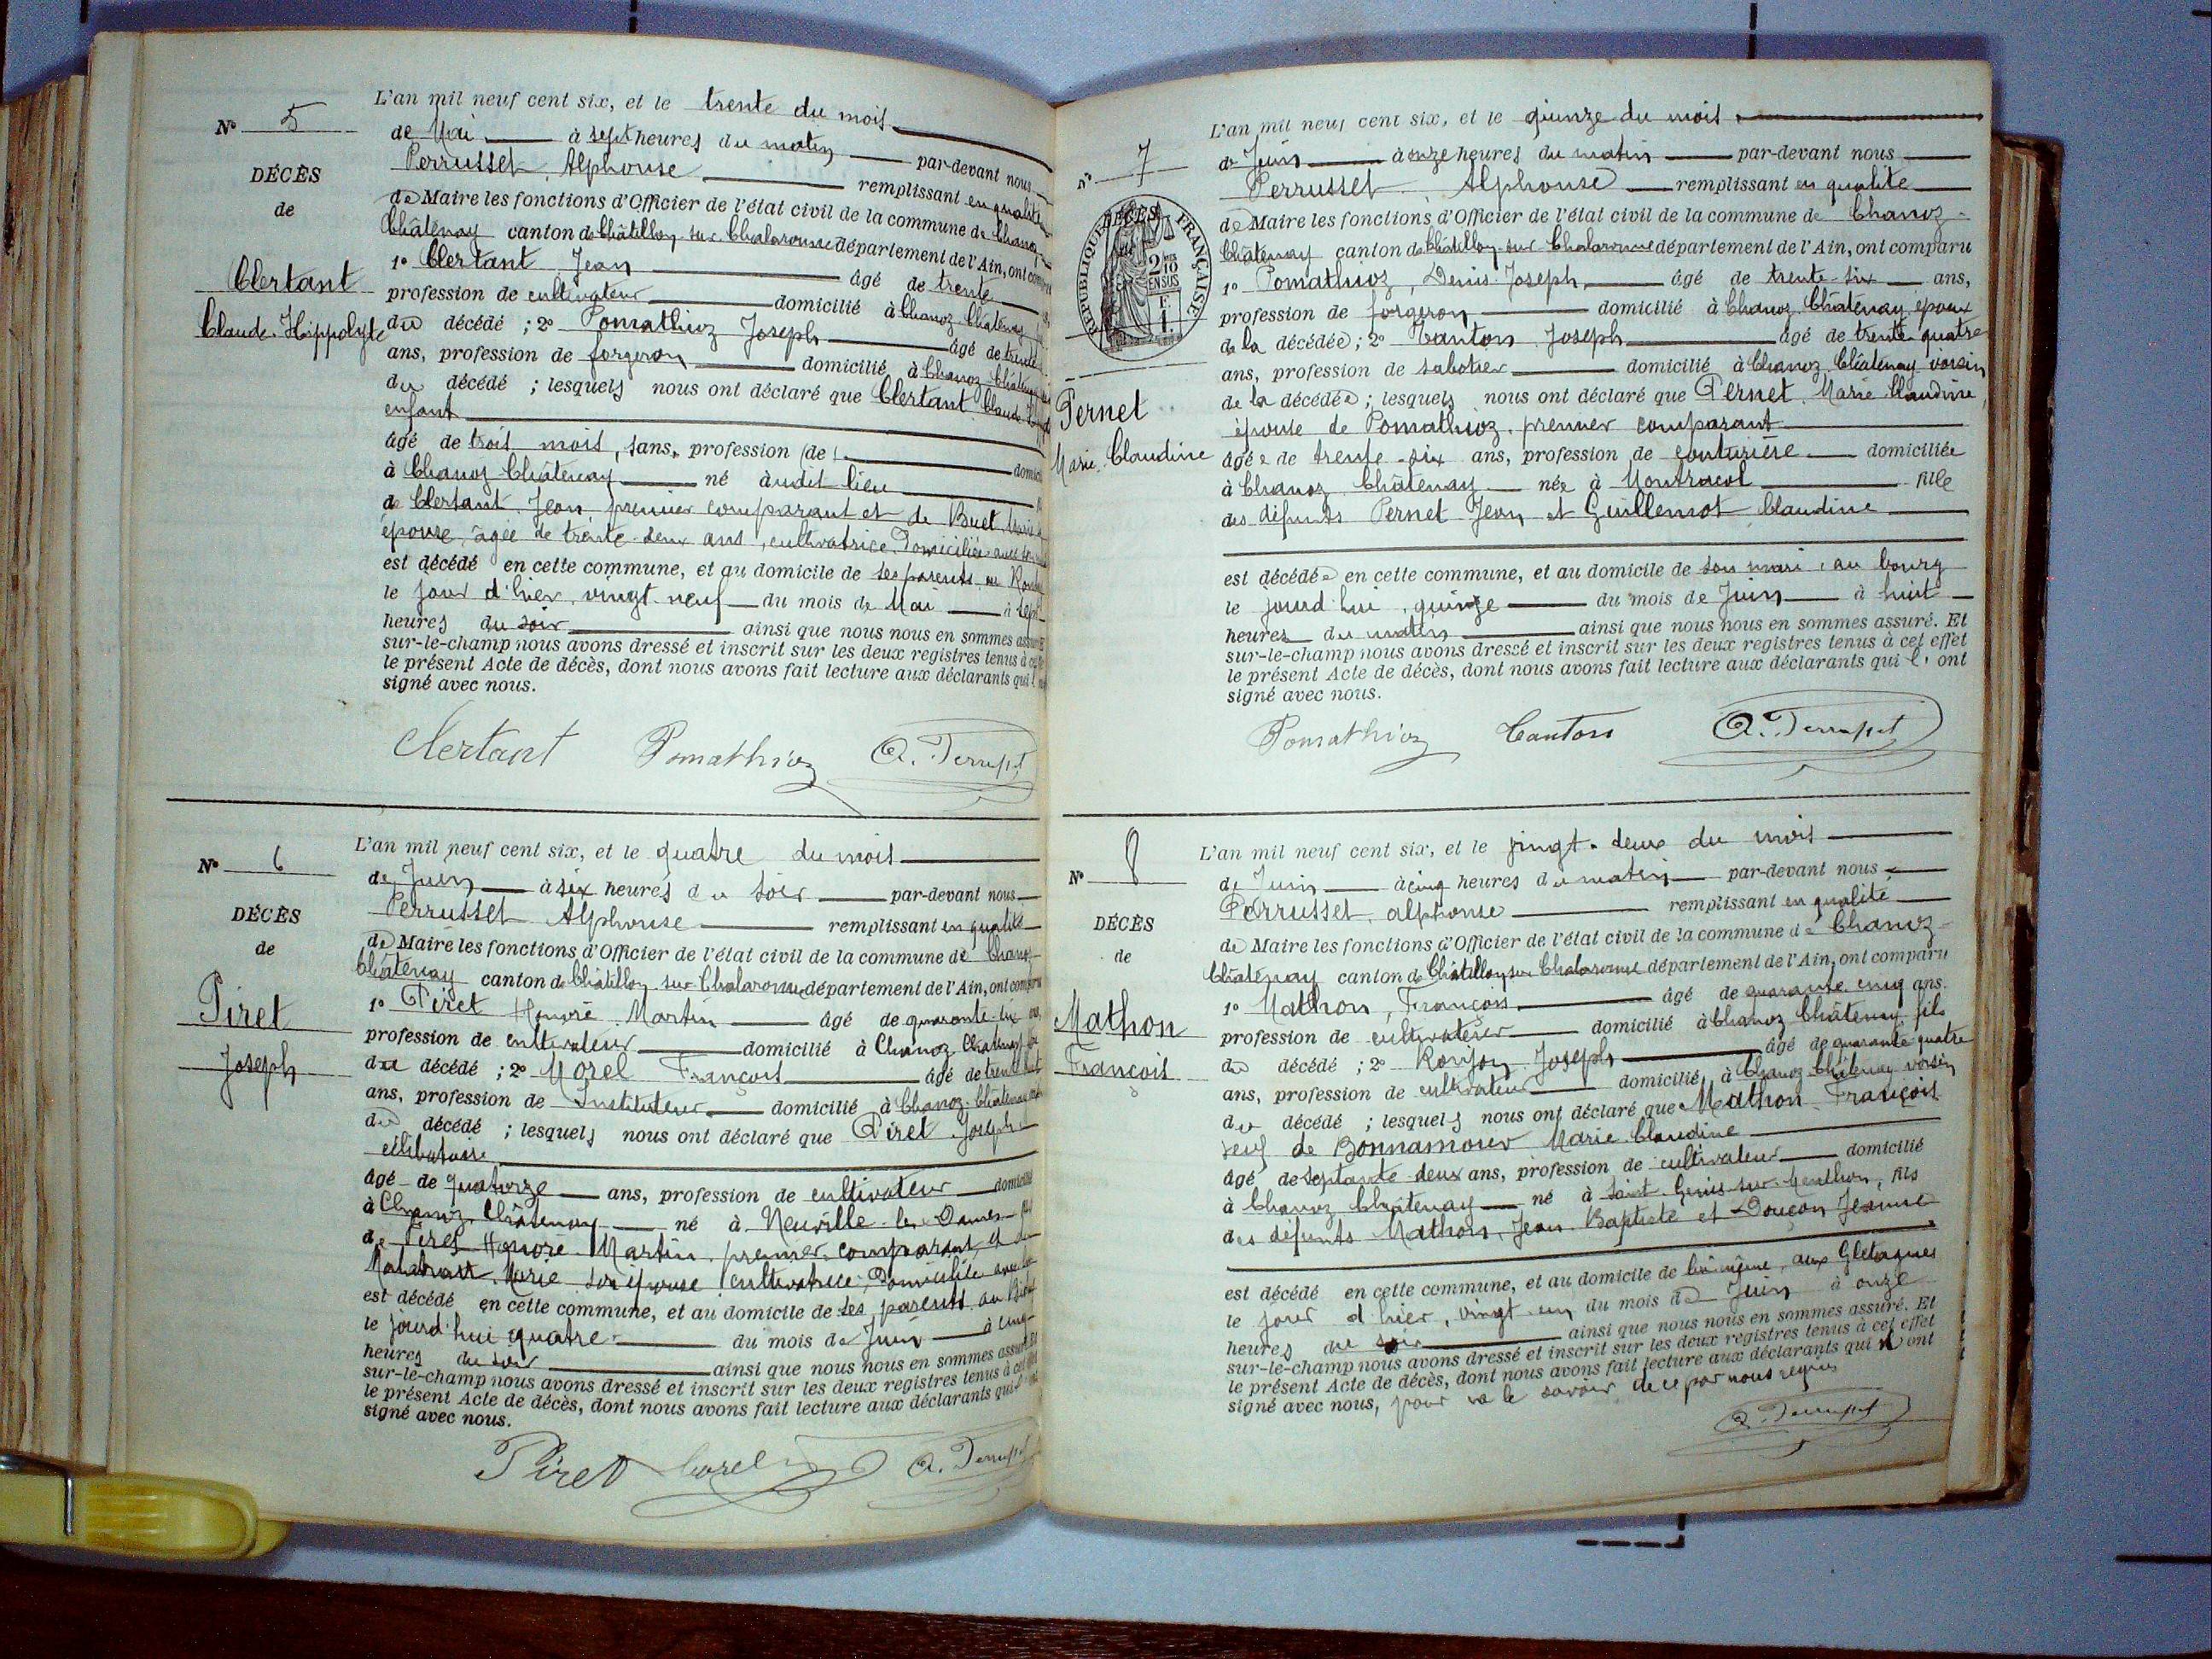 N° 5
DÉCÈS
de
Clertant
Claude Hippolyte
L'an mil neuf cent six, et le trente du mois
de Mai à sept heures du matin par-devant nous
Perrusset Alphonse remplissant en qualité
de Maire les fonctions d'Officier de l'état civil de la commune de Chanoz
Châtenay canton de Châtillon sur Chalaronne département de l'Ain, ont
1° Clertant Jean âgé de trente
profession de cultivateur domicilié à Chanoz Châtenay
du décédé ; 2° Pomathioz Joseph âgé de trente
ans, profession de forgeron domicilié à Chanoz Châtenay
du décédé ; lesquels nous ont déclaré que Clertant Claude
enfant
âgé de trois mois, sans, profession de
à Chanoz Châtenay né audit lieu
de Clertant Jean premier comparant et de Buet
épouse, âgée de trente deux ans, cultivatrice domiciliée avec
est décédé en cette commune, et au domicile de ses parents au
le jour d'hier, vingt neuf du mois de Mai à sept
heures du soir ainsi que nous nous en sommes
sur-le-champ nous avons dressé et inscrit sur les deux registres tenus à
le présent Acte de décès, dont nous avons fait lecture aux déclarants qui
signé avec nous.
Clertant Pomathioz A. Perrusset
N° 6
DÉCÈS
de
Piret
Joseph
L'an mil neuf cent six, et le quatre du mois
de Juin à six heures du soir par-devant nous
Perrusset Alphonse remplissant en qualité
de Maire les fonctions d'Officier de l'état civil de la commune de Chanoz
Châtenay canton de Châtillon sur Chalaronne département de l'Ain, ont comparu
1° Piret Honoré Martin âgé de quarante-six
profession de cultivateur domicilié à Chanoz Châtenay
du décédé ; 2° Morel François âgé de trente huit
ans, profession de Instituteur domicilié à Chanoz-Châtenay
du décédé ; lesquels nous ont déclaré que Piret Joseph
célibataire
âgé de quatorze ans, profession de cultivateur domicilié
à Chanoz Châtenay né à Neuville les Dames
de Piret Honoré Martin premier comparant, et de
Marie son épouse cultivatrice, domiciliée avec
est décédé en cette commune, et au domicile de ses parents au
le jourd'hui quatre du mois de Juin à cinq
heures du soir ainsi que nous nous en sommes assuré
sur-le-champ nous avons dressé et inscrit sur les deux registres tenus à cet
le présent Acte de décès, dont nous avons fait lecture aux déclarants qui
signé avec nous.
Piret Morel A. Perrusset
7
RÉPUBLIQUE FRANÇAISE
DÉCÈS
2/10 EN SUS
Pernet
Marie Claudine
L'an mil neuf cent six, et le quinze du mois
de Juin à onze heures du matin par-devant nous
Perrusset Alphonse remplissant en qualité
de Maire les fonctions d'Officier de l'état civil de la commune de Chanoz-
Châtenay canton de Châtillon-sur Chalaronne département de l'Ain, ont comparu
1° Pomathioz, Denis Joseph, âgé de trente six ans,
profession de forgeron domicilié à Chanoz Châtenay époux
de la décédée ; 2° Canton Joseph âgé de trente quatre
ans, profession de sabotier domicilié à Chanoz Châtenay voisin
de la décédée ; lesquels nous ont déclaré que Pernet, Marie Claudine,
épouse de Pomathioz, premier comparant
âgée de trente-six ans, profession de couturière domiciliée
à Chanoz Châtenay née à Montracol fille
des défunts Pernet Jean et Guillemot Claudine
est décédée en cette commune, et au domicile de son mari, au bourg
le jourd'hui, quinze du mois de Juin à huit
heures du matin ainsi que nous nous en sommes assuré. Et
sur-le-champ nous avons dressé et inscrit sur les deux registres tenus à cet effet
le présent Acte de décès, dont nous avons fait lecture aux déclarants qui l'ont
signé avec nous.
Pomathioz Canton A. Perrusset
N° 8
DÉCÈS
de
Mathon
François
L'an mil neuf cent six, et le vingt-deux du mois
de Juin à cinq heures du matin par-devant nous
Perrusset, alphonse remplissant en qualité
de Maire les fonctions d'Officier de l'état civil de la commune de Chanoz-
Châtenay canton de Châtillon sur Chalaronne département de l'Ain, ont comparu
1° Mathon, François âgé de quarante cinq ans.
profession de cultivateur domicilié à Chanoz Châtenay fils
du décédé ; 2° Ronjon Joseph âgé de quarante quatre
ans, profession de cultivateur domicilié à Chanoz Châtenay voisin
du décédé ; lesquels nous ont déclaré que Mathon François
veuf de Bonnamour Marie Claudine
âgé de septante deux ans, profession de cultivateur domicilié
à Chanoz Châtenay né à Saint Genis sur Menthon, fils
des défunts Mathon, Jean Baptiste et Douçon Jeanne
est décédé en cette commune, et au domicile de lui-même, aux Gletagnes
le jour d'hier, vingt-un du mois de Juin à onze
heures du soir ainsi que nous nous en sommes assuré. Et
sur-le-champ nous avons dressé et inscrit sur les deux registres tenus à cet effet
le présent Acte de décès, dont nous avons fait lecture aux déclarants qui n'ont
signé avec nous, pour ne le savoir de ce par nous requis
A. Perrusset